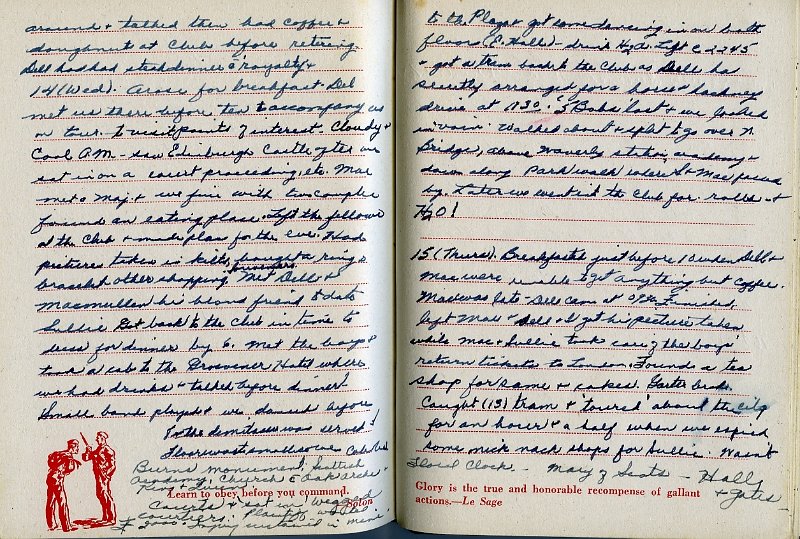 around & talked then had coffee &
doughnut at Club before retiring.
Dell had had steak dinner &
14 (Wed). Arose for breakfast. Del
met us there before ten to accompany us
on tour. to visit points of interest. Cloudy &
Cool AM - saw Edinburgh Castle after we
sat in on a court proceeding, etc. Mac
met & Maj. & we five with two couples
found an eating place. Left the fellows
at the Club & made plans for the eve. Had
pictures taken in kilts, bought a ring &
bracelet other shopping souvenirs. Met Dell &
Macmullen his blond friend to date
Sallie. Got back to the Club in time to
dress for dinner by 6. Met the boys &
took a cab to the Grosvenor Hotel where
we had drinks & talked before dinner!
Small band played & we danced before
the demitasse was served!
Floor was small so we
Burns monument, Scottish
Academy, Church & Oak arches &
King
Learn to obey before you command.
—Solon
Courts & sat in Wigged
to the Plaza & got some dancing in on both
floors (2 Halls) - drink H2O. Left @ 2245
& got a tram back to the Club as Dell had
secretly arranged for a horse & hackney
drive at 1130. "3 Bobs" last & we looked
in "vain". Walked about & split to go over N.
Bridge, above Waverly station, and
down along Park walk where & Mac passed
by. Later we went in the Club for rolls &
H2O!
15 (Thurs). Breakfasted just before 10 when Dell &
Mac were unable to get anything but coffee.
Mac was late - Dell came at 0930. Finished,
left Mac & Dell & I got his picture taken
while Mac & Sallie took care of the boys'
return tickets to London. Found a tea
shop for some & cakes.
Caught (13) tram & 'toured' about the city
for an hour & a half when we espied
some nick nack shops for Sallie. Wasn't
Floral Clock - Mary of Scots - Holly
& Gates -
Glory is the true and honorable recompense of gallant
actions.—Le Sage